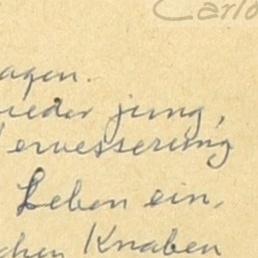 Carlo
agen.
wieder jung,
Verwesserung
Leben ein,
chen Knaben